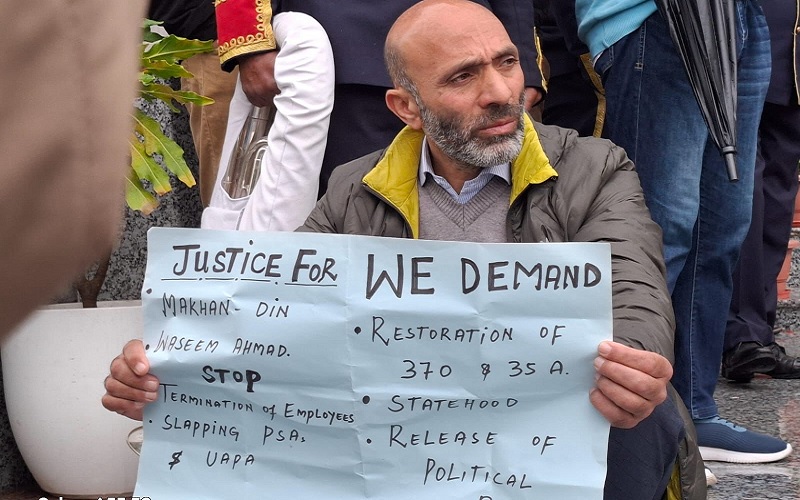 JUSTICE FOR
• MAKHAN - DIN
• WASEEM AHMAD.
STOP
• TERMINATION OF EMPLOYEES
• SLAPPING PSA,
$ UAPA
WE DEMAND
• RESTORATION OF
370 $ 35 A.
• STATEHOOD
• RELEASE OF
POLITICAL